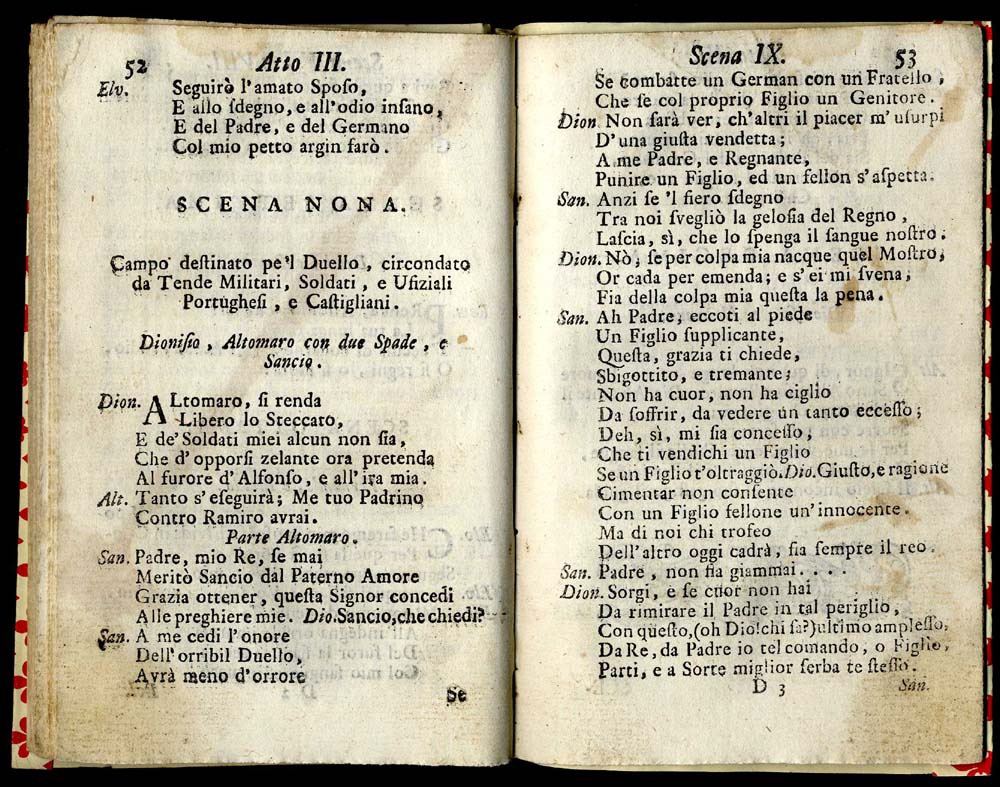 52 Atto III.
Elv. Seguirò l'amato Sposo,
E allo ſdegno, e all'odio inſano,
E del Padre, e del Germano
Col mio petto argin farò.
SCENA NONA.
Campo deſtinato pe'l Duello, circondato
da Tende Militari, Soldati, e Ufiziali
Portugheſi, e Caſtigliani.
Dioniſio, Altomaro con due Spade, e
Sancio.
Dion. ALtomaro, ſi renda
Libero lo Steccato,
E de' Soldati miei alcun non ſia,
Che d'opporſi zelante ora pretenda
Al furore d'Alfonſo, e all'ira mia.
Alt. Tanto s'eſeguirà; Me tuo Padrino
Contro Ramiro avrai.
Parte Altomaro.
San. Padre, mio Re, ſe mai
Meritò Sancio dal Paterno Amore
Grazia ottener, queſta Signor concedi
Alle preghiere mie. Dio. Sancio, che chiedi?
San. A me cedi l'onore
Dell'orribil Duello,
Avrà meno d'orrore
Se
Scena IX. 53
Se combatte un German con un Fratello,
Che ſe col proprio Figlio un Genitore.
Dion. Non ſarà ver, ch'altri il piacer m'uſurpi
D'una giuſta vendetta;
A me Padre, e Regnante,
Punire un Figlio, ed un fellon s'aſpetta.
San. Anzi ſe 'l fiero ſdegno
Tra noi ſvegliò la geloſia del Regno,
Laſcia, sì, che lo ſpenga il ſangue noſtro.
Dion. Nò, ſe per colpa mia nacque quel Moſtro,
Or cada per emenda; e s'ei mi ſvena,
Fia della colpa mia queſta la pena.
San. Ah Padre, eccoti al piede
Un Figlio ſupplicante,
Queſta, grazia ti chiede,
Sbigottito, e tremante;
Non ha cuor, non ha ciglio
Da ſoffrir, da vedere un tanto ecceſſo;
Deh, sì, mi ſia conceſſo,
Che ti vendichi un Figlio
Se un Figlio t'oltraggiò. Dio. Giuſto, e ragione
Cimentar non conſente
Con un Figlio fellone un'innocente.
Ma di noi chi trofeo
Dell'altro oggi cadrà, ſia ſempre il reo.
San. Padre, non fia giammai....
Dion. Sorgi, e ſe cuor non hai
Da rimirare il Padre in tal periglio,
Con queſto, (oh Dio! chi ſa?) ultimo ampleſſo,
Da Re, da Padre io tel comando, o Figlio,
Parti, e a Sorte miglior ſerba te ſteſſo.
D 3 San.